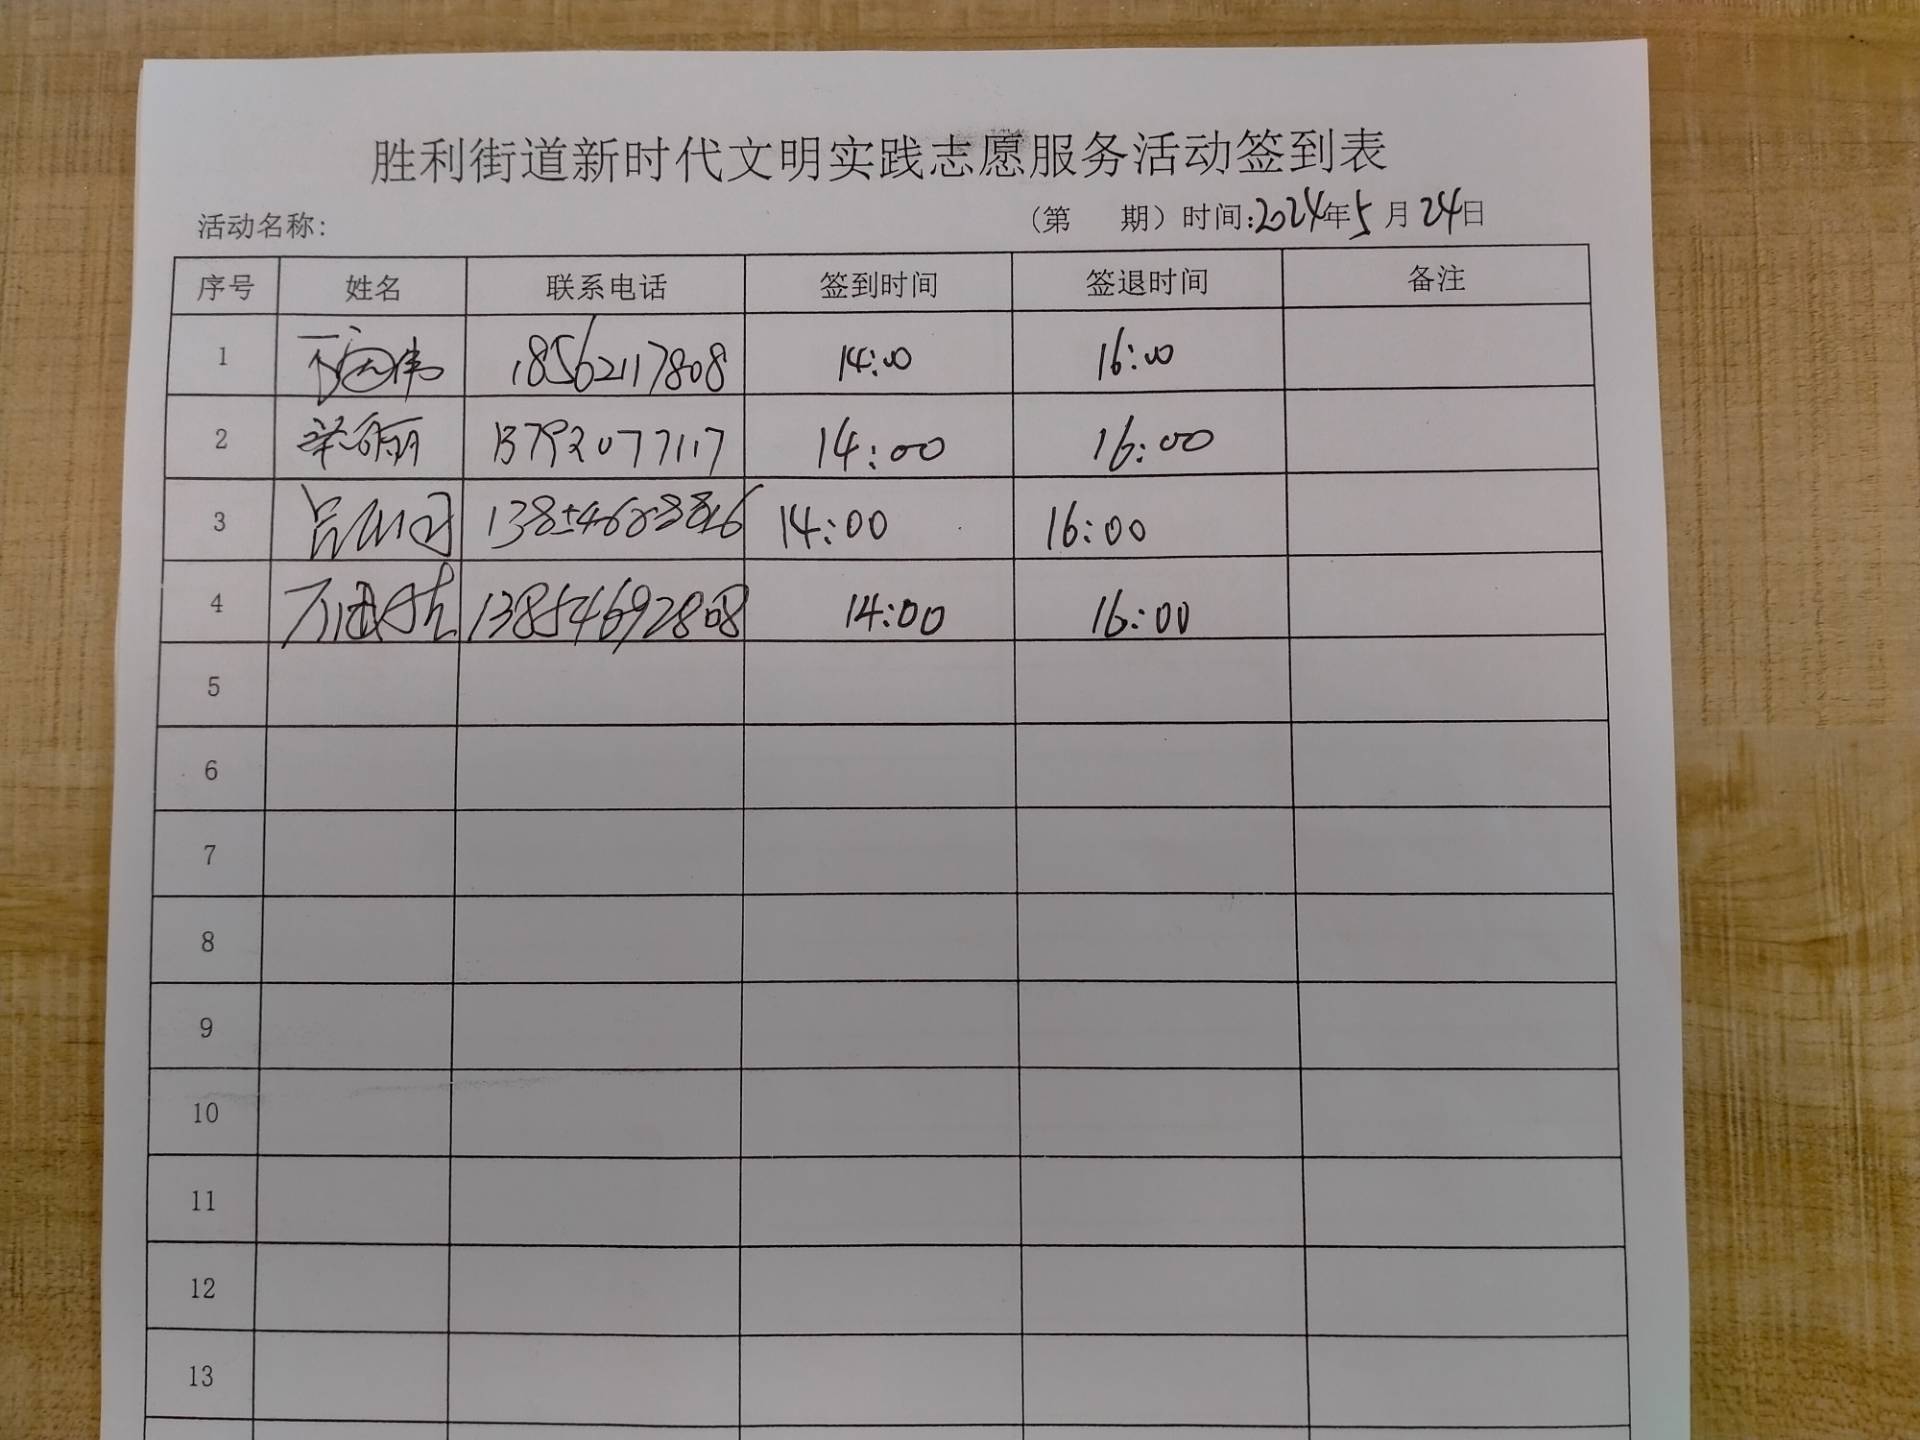 胜利街道新时代文明实践志愿服务活动签到表
活动名称: （第 期）时间:2024年5月24日
序号 姓名 联系电话 签到时间 签退时间 备注
1 18562117808 14:00 16:00
2 13792077117 14:00 16:00
3 14:00 16:00
4 13854692808 14:00 16:00
5
6
7
8
9
10
11
12
13